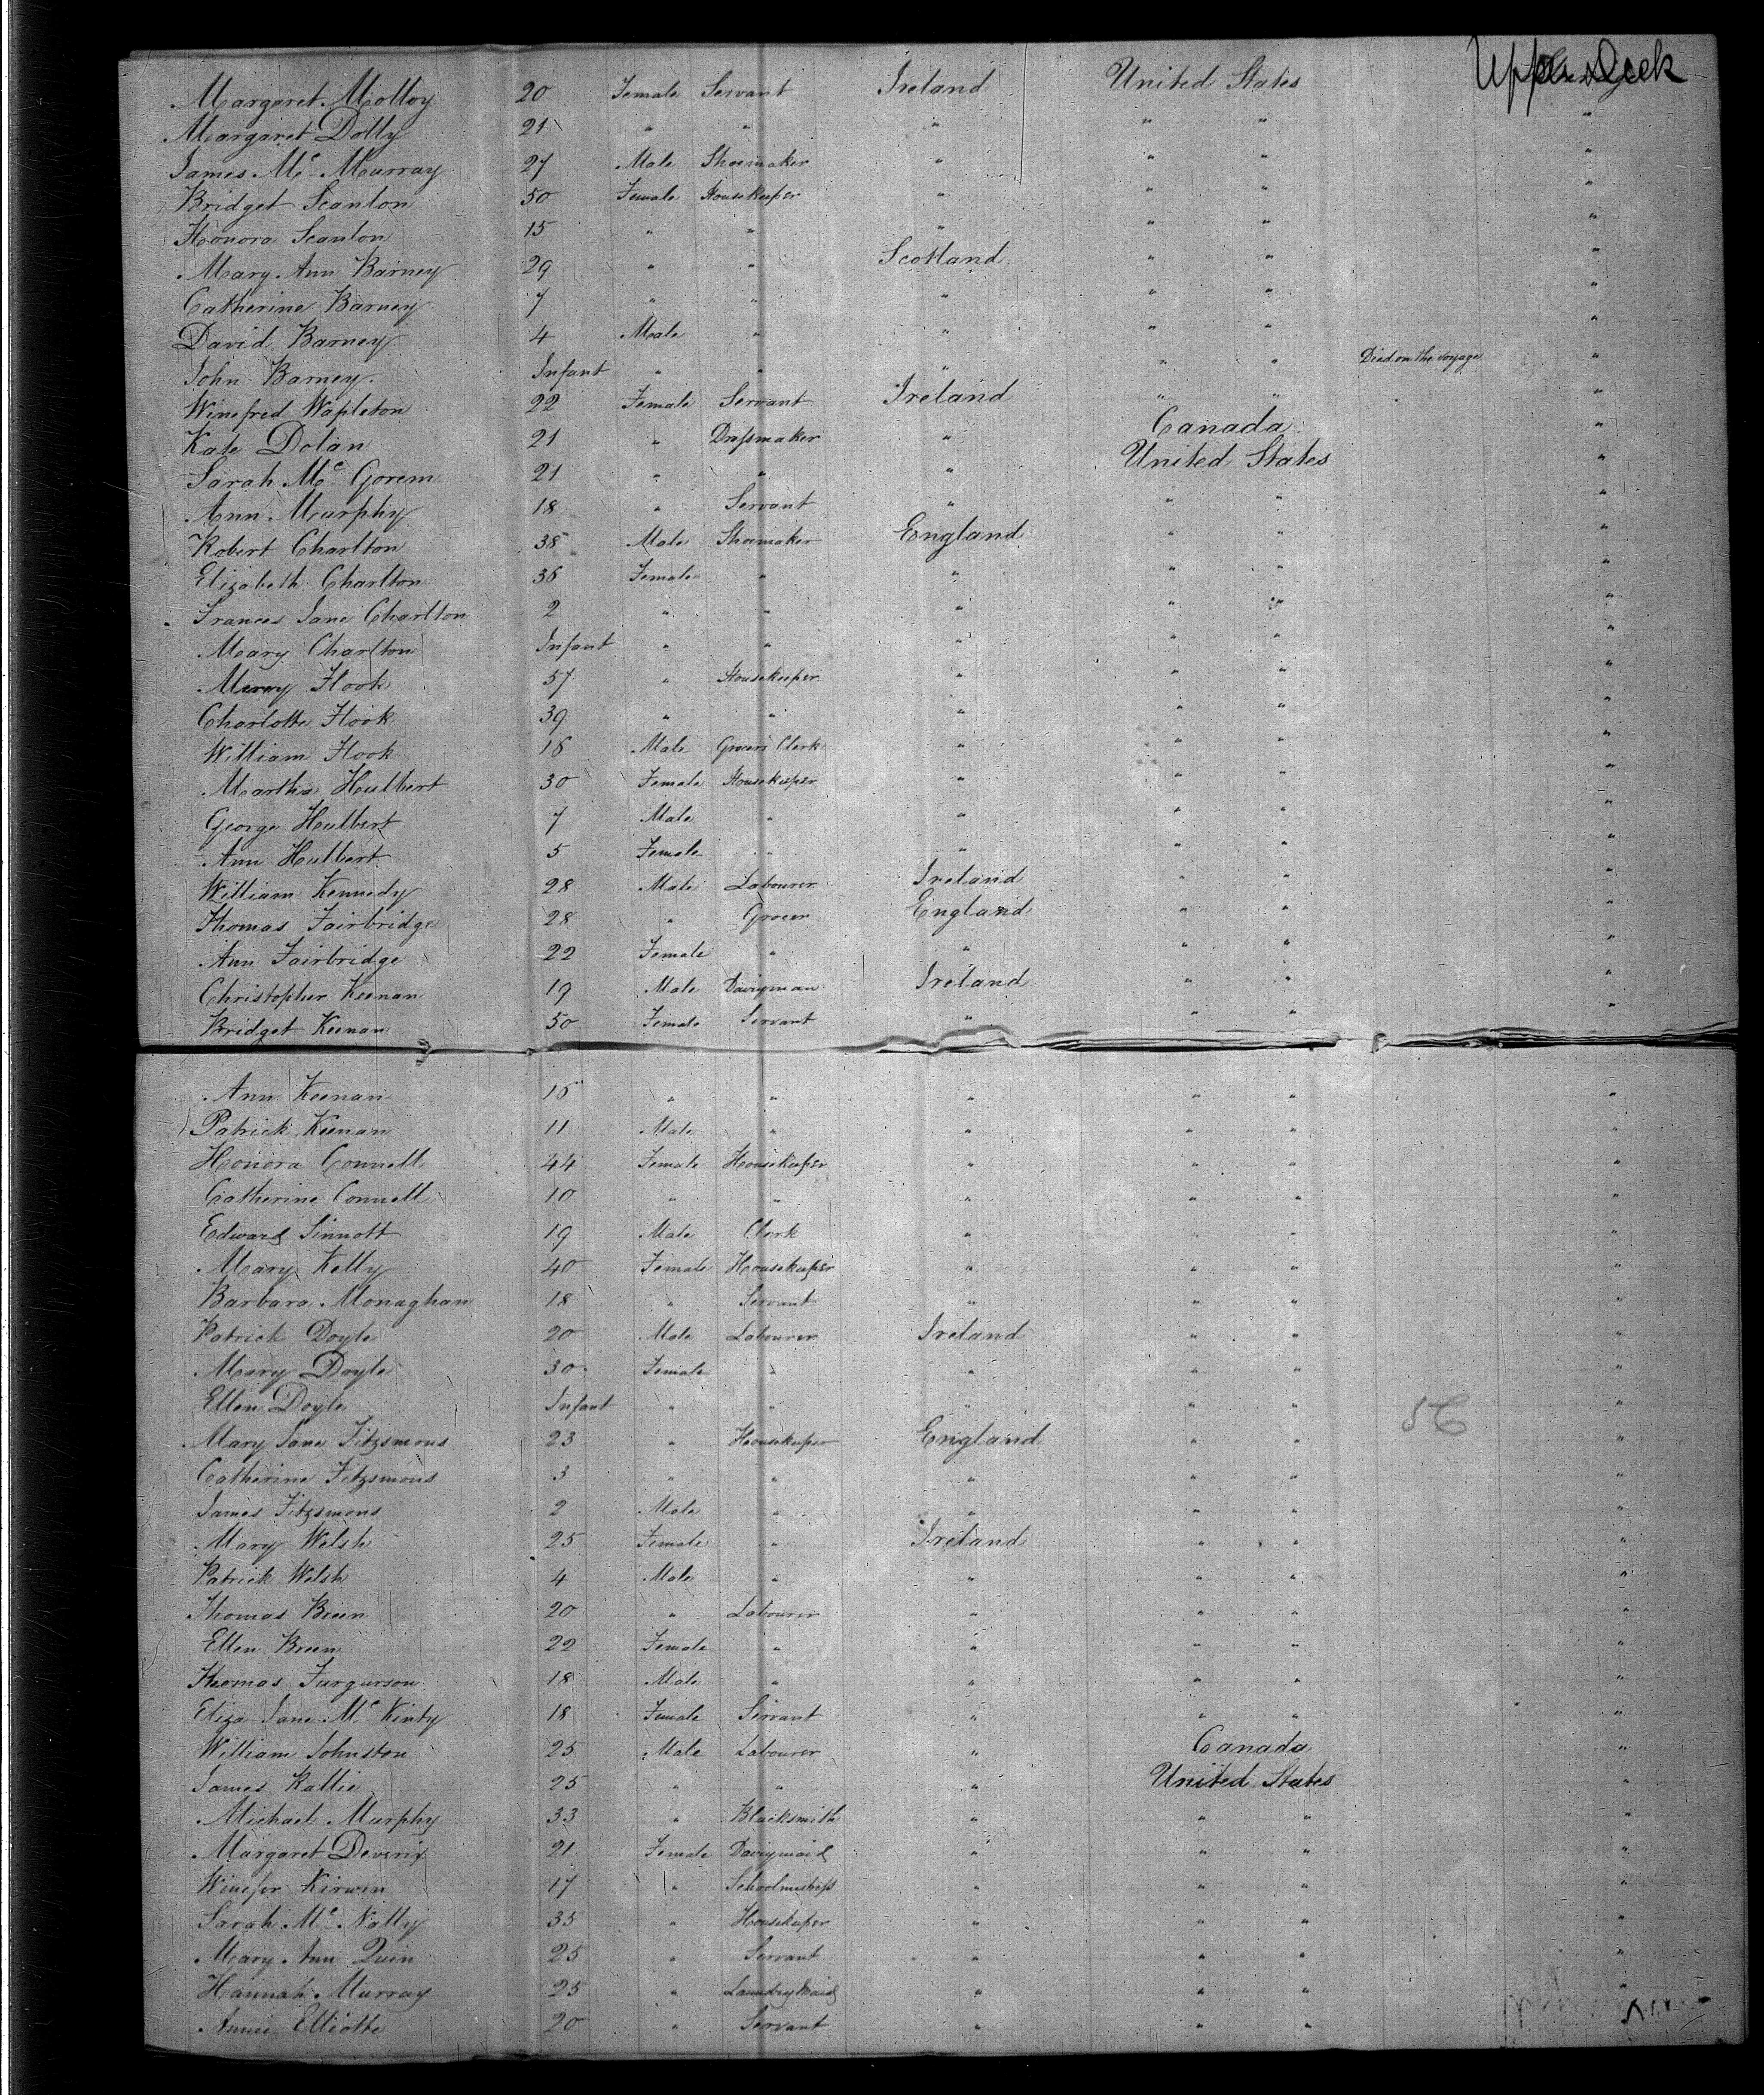 Upper Deck
Margaret Molloy 20 Female Servant Ireland United States
Margaret Dolly 21 " " " " " "
James Mc Murray 27 Male Shoemaker " " " "
Bridget Scanlon 50 Female Housekeeper " " " "
Honora Scanlon 15 " " " " " "
Mary Ann Barney 29 " " Scotland " " "
Catherine Barney 7 " " " " " "
David Barney 4 Male " " " " "
John Barney Infant " " " " " Died on the voyage "
Winefred Wapleton 22 Female Servant Ireland " " "
Kate Dolan 21 " Dressmaker " Canada "
Sarah Mc Gorem 21 " " " United States "
Ann Murphy 18 " Servant " " " "
Robert Charlton 38 Male Shoemaker England " " "
Elizabeth Charlton 36 Female " " " " "
Frances Jane Charlton 2 " " " " " "
Mary Charlton Infant " " " " " "
Mercy Flook 57 " Housekeeper " " " "
Charlotte Flook 39 " " " " " "
William Flook 18 Male Grocers Clerk " " " "
Martha Hulbert 30 Female Housekeeper " " " "
George Hulbert 7 Male " " " " "
Ann Hulbert 5 Female " " " " "
William Kennedy 28 Male Labourer Ireland " " "
Thomas Fairbridge 28 " Grocer England " " "
Ann Fairbridge 22 Female " " " " "
Christopher Keenan 19 Male Dairyman Ireland " " "
Bridget Keenan 50 Female Servant " " " "
Ann Keenan 15 " " " " " "
Patrick Keenan 11 Male " " " " "
Honora Connell 44 Female Housekeeper " " " "
Catherine Connell 10 " " " " " "
Edward Sinnott 19 Male Clerk " " " "
Mary Kelly 40 Female Housekeeper " " " "
Barbara Monaghan 18 " Servant " " " "
Patrick Doyle 20 Male Labourer Ireland " " "
Mary Doyle 30 Female " " " " "
Ellen Doyle Infant " " " " " "
Mary Jane Fitzsmons 23 " Housekeeper England " " "
Catherine Fitzsmons 3 " " " " " "
James Fitzsmons 2 Male " " " " "
Mary Welsh 25 Female " Ireland " " "
Patrick Welsh 4 Male " " " " "
Thomas Breen 20 " Labourer " " " "
Ellen Breen 22 Female " " " " "
Thomas Furgurson 18 Male " " " " "
Eliza Jane Mc Kinty 18 Female Servant " " " "
William Johnston 25 Male Labourer " Canada "
James Rallie 25 " " " United States "
Michael Murphy 33 " Blacksmith " " " "
Margaret Deverix 21 Female Dairymaid " " " "
Winefer Kirwin 17 " Schoolmistress " " " "
Sarah Mc Nally 35 " Housekeeper " " " "
Mary Ann Quin 25 " Servant " " " "
Hannah Murray 25 " Laundry Maid " " " "
Annie Elliotte 20 " Servant " " "